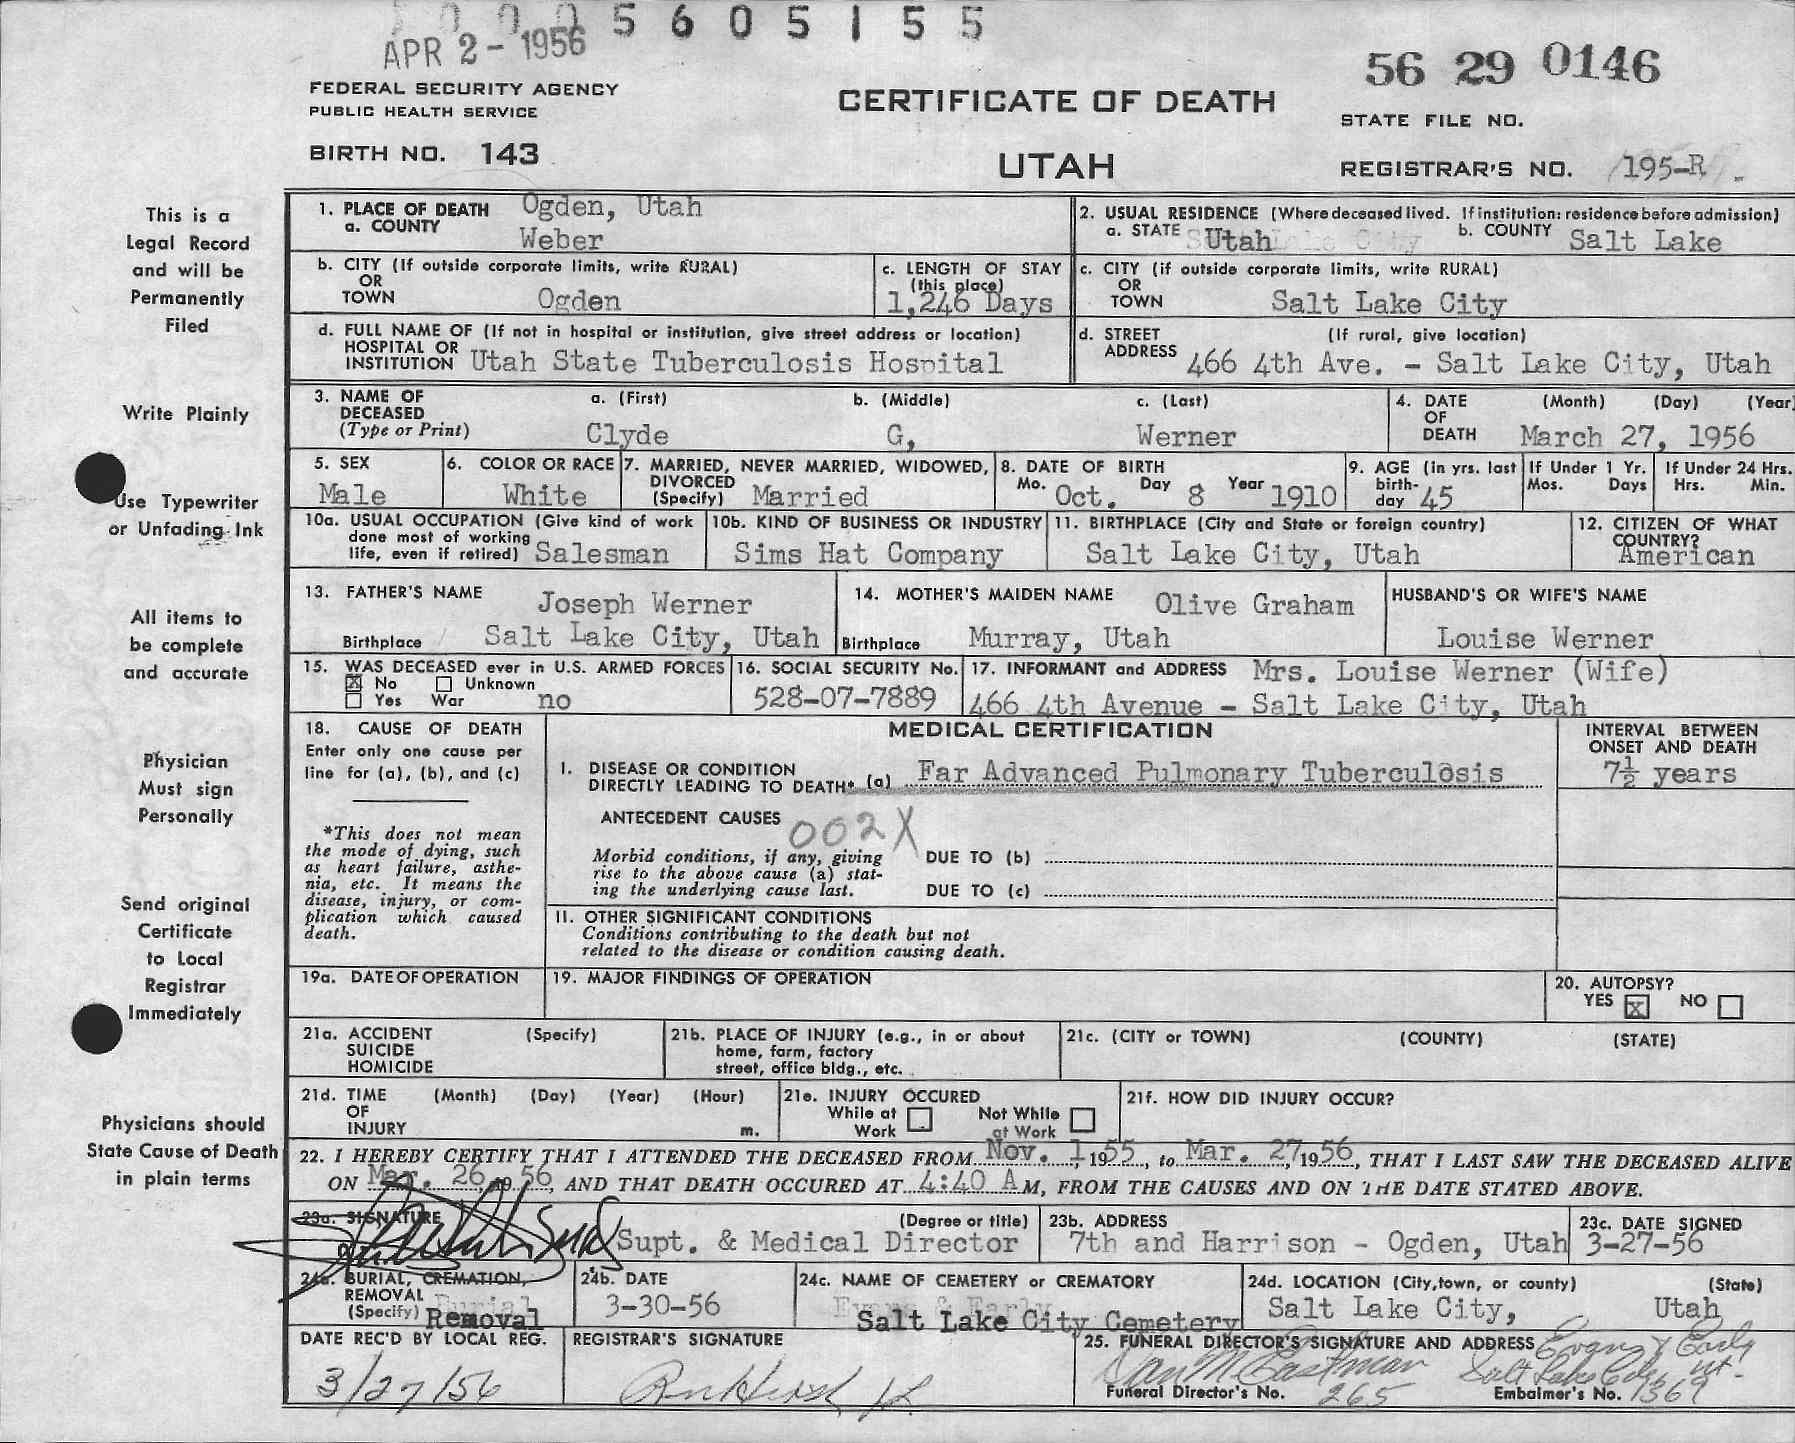 0005605155
APR 2 - 1956
56 29 0146
FEDERAL SECURITY AGENCY
PUBLIC HEALTH SERVICE
CERTIFICATE OF DEATH
STATE FILE NO.
BIRTH NO. 143
UTAH
REGISTRAR'S NO. 195-R
This is a
Legal Record
and will be
Permanently
Filed
Write Plainly
Use Typewriter
or Unfading Ink
All items to
be complete
and accurate
Physician
Must sign
Personally
Send original
Certificate
to Local
Registrar
Immediately
Physicians should
State Cause of Death
in plain terms
1. PLACE OF DEATH Ogden, Utah
a. COUNTY Weber
2. USUAL RESIDENCE (Where deceased lived. If institution: residence before admission)
a. STATE Utah b. COUNTY Salt Lake
b. CITY (If outside corporate limits, write RURAL)
OR
TOWN Ogden
c. LENGTH OF STAY
(this place)
1,246 Days
c. CITY (if outside corporate limits, write RURAL)
OR
TOWN Salt Lake City
d. FULL NAME OF (If not in hospital or institution, give street address or location)
HOSPITAL OR
INSTITUTION Utah State Tuberculosis Hospital
d. STREET (If rural, give location)
ADDRESS 466 4th Ave. - Salt Lake City, Utah
3. NAME OF a. (First) b. (Middle) c. (Last)
DECEASED
(Type or Print) Clyde G, Werner
4. DATE (Month) (Day) (Year)
OF
DEATH March 27, 1956
5. SEX
Male
6. COLOR OR RACE
White
7. MARRIED, NEVER MARRIED, WIDOWED,
DIVORCED
(Specify) Married
8. DATE OF BIRTH
Mo. Oct. Day 8 Year 1910
9. AGE (in yrs. last
birth-
day 45
If Under 1 Yr.
Mos. Days
If Under 24 Hrs.
Hrs. Min.
10a. USUAL OCCUPATION (Give kind of work
done most of working
life, even if retired) Salesman
10b. KIND OF BUSINESS OR INDUSTRY
Sims Hat Company
11. BIRTHPLACE (City and State or foreign country)
Salt Lake City, Utah
12. CITIZEN OF WHAT
COUNTRY?
American
13. FATHER'S NAME Joseph Werner
Birthplace Salt Lake City, Utah
14. MOTHER'S MAIDEN NAME Olive Graham
Birthplace Murray, Utah
HUSBAND'S OR WIFE'S NAME
Louise Werner
15. WAS DECEASED ever in U.S. ARMED FORCES
X No Unknown
Yes War no
16. SOCIAL SECURITY No.
528-07-7889
17. INFORMANT and ADDRESS Mrs. Louise Werner (Wife)
466 4th Avenue - Salt Lake City, Utah
18. CAUSE OF DEATH
Enter only one cause per
line for (a), (b), and (c)
*This does not mean
the mode of dying, such
as heart failure, asthe-
nia, etc. It means the
disease, injury, or com-
plication which caused
death.
MEDICAL CERTIFICATION
INTERVAL BETWEEN
ONSET AND DEATH
I. DISEASE OR CONDITION
DIRECTLY LEADING TO DEATH* (a) Far Advanced Pulmonary Tuberculosis
7½ years
ANTECEDENT CAUSES 002X
Morbid conditions, if any, giving
rise to the above cause (a) stat-
ing the underlying cause last.
DUE TO (b)
DUE TO (c)
II. OTHER SIGNIFICANT CONDITIONS
Conditions contributing to the death but not
related to the disease or condition causing death.
19a. DATE OF OPERATION
19. MAJOR FINDINGS OF OPERATION
20. AUTOPSY?
YES X NO
21a. ACCIDENT (Specify)
SUICIDE
HOMICIDE
21b. PLACE OF INJURY (e.g., in or about
home, farm, factory
street, office bldg., etc.
21c. (CITY or TOWN) (COUNTY) (STATE)
21d. TIME (Month) (Day) (Year) (Hour)
OF
INJURY m.
21e. INJURY OCCURED
While at Work Not While at Work
21f. HOW DID INJURY OCCUR?
22. I HEREBY CERTIFY THAT I ATTENDED THE DECEASED FROM Nov. 1, 1955, to Mar. 27, 1956, THAT I LAST SAW THE DECEASED ALIVE
ON Mar. 26, 1956, AND THAT DEATH OCCURED AT 4:40 A M, FROM THE CAUSES AND ON THE DATE STATED ABOVE.
23a. SIGNATURE (Degree or title)
Supt. & Medical Director
23b. ADDRESS
7th and Harrison - Ogden, Utah
23c. DATE SIGNED
3-27-56
24a. BURIAL, CREMATION,
REMOVAL
(Specify) Removal
24b. DATE
3-30-56
24c. NAME OF CEMETERY or CREMATORY
Salt Lake City Cemetery
24d. LOCATION (City, town, or county) (State)
Salt Lake City, Utah
DATE REC'D BY LOCAL REG.
3/27/56
REGISTRAR'S SIGNATURE
25. FUNERAL DIRECTOR'S SIGNATURE AND ADDRESS Evans & Early
Dan M Eastman Salt Lake City Ut.
Funeral Director's No. 265 Embalmer's No. 1369